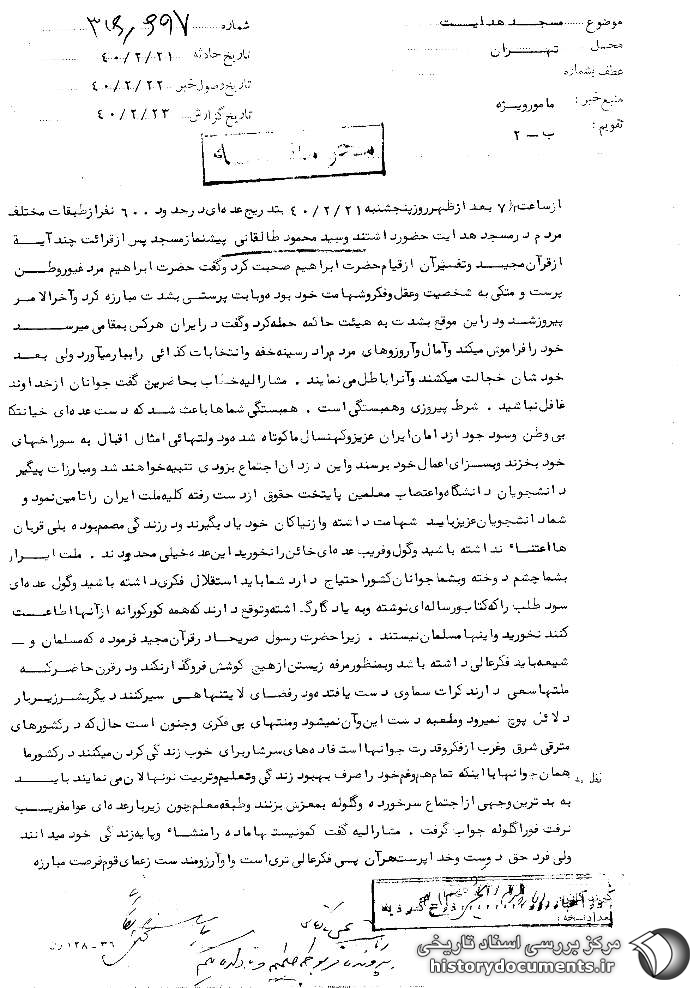 موضوع ..... مسجد هدایت
محل تهران
عطف بشماره
منبع خبر : مامور ویژه
تقویم : ب - ۲
شماره
تاریخ حادثه ۴۰/۲/۲۱
تاریخ وصول خبر ۴۰/۲/۲۲
تاریخ گزارش ۴۰/۲/۲۳
از ساعت ۷ بعد از ظهر روز پنجشنبه ۴۰/۲/۲۱ بتدریج عده‌ای در حدود ۶۰۰ نفر از طبقات مختلف
مردم در مسجد هدایت حضور داشتند و سید محمود طالقانی پیشنماز مسجد پس از قرائت چند آیه
از قرآن مجید و تفسیر آن از قیام حضرت ابراهیم صحبت کرد و گفت حضرت ابراهیم مرد غیور وطن
پرست و متکی به شخصیت و عقل و فکر و شهامت خود بوده و با بت پرستی بشدت مبارزه کرد و آخرالامر
پیروز شد و در این موقع بشدت به هیئت حاکمه حمله کرد و گفت در ایران هرکس بمقامی میرسد
خود را فراموش میکند و آمال و آرزوهای مردم را در سینه خفه و انتخابات کذائی را ببار میآورد ولی بعد
خودشان خجالت میکشند و آنرا باطل می نمایند . مشارالیه خطاب بحاضرین گفت جوانان از خداوند
غافل نباشید . شرط پیروزی و همبستگی است . همبستگی شماها باعث شد که دست عده‌ای خیانتکا
بی وطن و سودجو از دامان ایران عزیز و کهنسال ما کوتاه شده و دولتهائی امثال اقبال به سوراخهای
خود بخزند و بسزای اعمال خود برسند و این دزدان اجتماع بزودی تنبیه خواهند شد و مبارزات پیگیر
دانشجویان دانشگاه و اعتصاب معلمین پایتخت حقوق از دست رفته کلیه ملت ایران را تامین نمود و
شما دانشجویان عزیز باید شهامت داشته و از نیاکان خود یاد بگیرند و در زندگی مصمم بوده بلی قربان
ها اعتناء نداشته باشید و گول و فریب عده‌ای خائن را نخورید این عده خیلی محدودند . ملت ایران
بشما چشم دوخته و بشما جوانان کشور احتیاج دارد شما باید استقلال فکری داشته باشید و گول عده‌ای
سود طلب را که کتاب و رساله‌ای نوشته و به یادگار گذاشته و توقع دارند که همه کورکورانه از آنها اطاعت
کنند نخورید و اینها مسلمان نیستند . زیرا حضرت رسول صریحا در قرآن مجید فرموده که مسلمان و —
شیعه باید فکر عالی داشته باشد و بمنظور مرفه زیستن از هیچ کوشش فروگذار نکند و در قرن حاضر که
ملتها سعی دارند کرات سماوی دست یافته و در فضای لایتنهاهی سیر کنند دیگر بشر زیر بار
دلائل پوچ نمیرود و طعمه دست این و آن نمیشود و منتهای بی فکری و جنون است حال که در کشورهای
مترقی شرق و غرب از فکر و قدرت جوانها استفاده‌های سرشار برای خوب زندگی کردن میکنند در کشور ما
همان جوانها با اینکه تمام هم و غم خود را صرف بهبود زندگی و تعلیم و تربیت نونهالان می نمایند باید
به بدترین وجهی از اجتماع سرخورده و گلوله بمغزش بزنند و طبقه معلم چون زیر بار عده‌ای عوامفریب
نرفت فورا گلوله جواب گرفت . مشارالیه گفت کمونیستها ماده را منشاء و پایه زندگی خود میدانند
ولی فرد حق دوست و خداپرست هرآن پسی فکر عالی تری است و او آرزومندست زعمای قوم فرصت مبارزه
۳۶ - ۱۲۸
مرکز بررسی اسناد تاریخی
historydocuments.ir